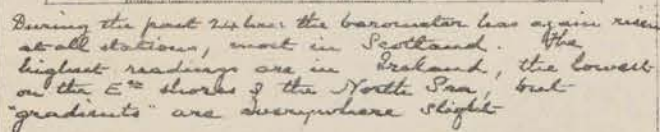 During the past 24 hours the barometer has again risen
at all stations, most in Scotland. The
highest readings are in Ireland, the lowest
on the Eⁿ shores of the North Sea, but
"gradients" are everywhere slight